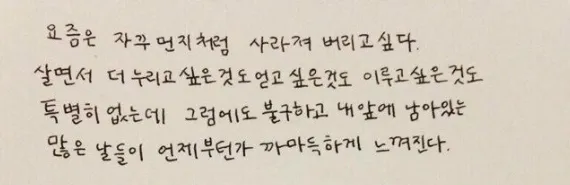 요즘은 자꾸 먼지처럼 사라져 버리고싶다.
살면서 더 누리고싶은것도 얻고 싶은것도 이루고싶은것도
특별히 없는데 그럼에도 불구하고 내앞에 남아있는
많은 날들이 언제부턴가 까마득하게 느껴진다.